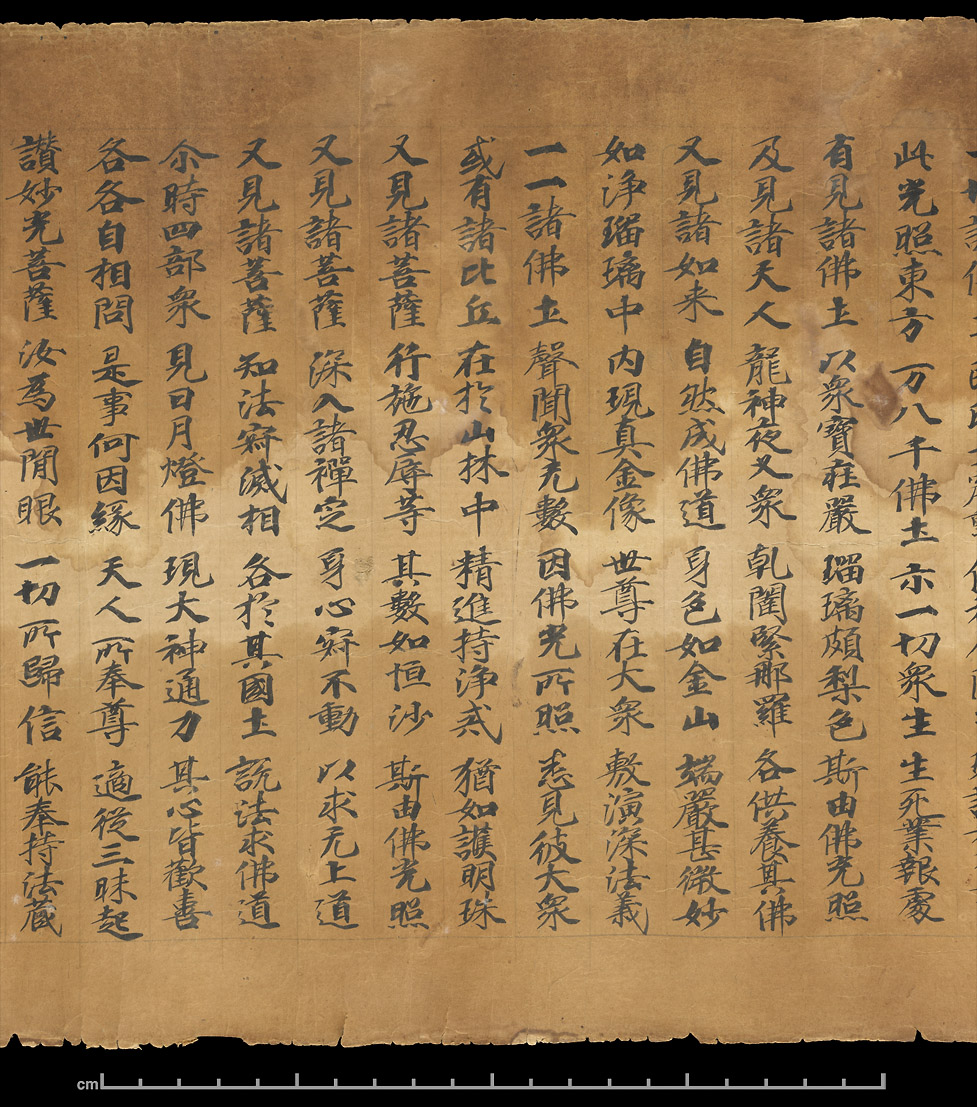 此光照東方 万八千佛土 示一切衆生 生死業報處
有見諸佛土 以衆寶莊嚴 瑠璃頗梨色 斯由佛光照
及見諸天人 龍神夜叉衆 乹闥緊那羅 各供養其佛
又見諸如来 自然成佛道 身色如金山 端嚴甚微妙
如浄瑠璃中 内現真金像 世尊在大衆 敷演深法義
一一諸佛土 聲聞衆无數 因佛光所照 悉見彼大衆
或有諸比丘 在於山林中 精進持浄戒 猶如護明珠
又見諸菩薩 行施忍辱等 其數如恒沙 斯由佛光照
又見諸菩薩 深入諸禪定 身心寂不動 以求无上道
又見諸菩薩 知法寂滅相 各於其國土 説法求佛道
尒時四部衆 見日月燈佛 現大神通力 其心皆歡喜
各各自相問 是事何因緣 天人所奉尊 適從三昧起
讃妙光菩薩 汝為世間眼 一切所歸信 能奉持法蔵